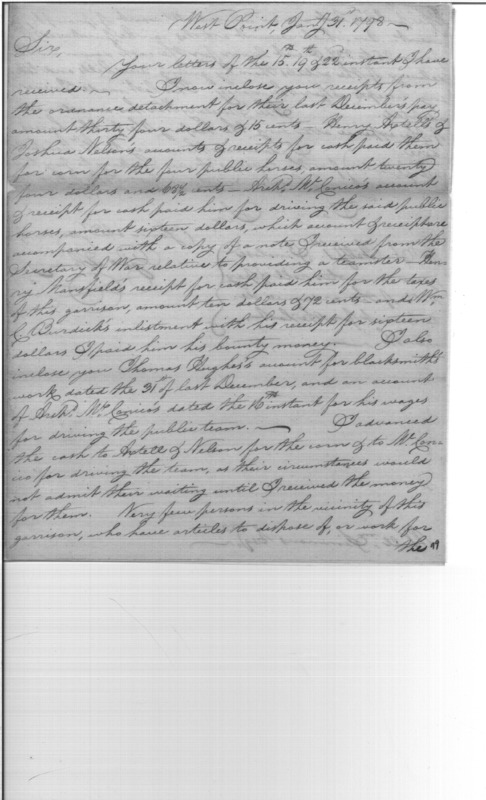 West Point, Jany 31st 1798 —
Sir,
Your letters of the 15th 19th & 22 instant I have
received — I now inclose you receipts from
the ordnance detachment for their last Decembers pay
amount thirty four dollars & 15 cents — Henry &
Joshua Nelson's accounts & receipts for cash paid them
for corn for the four public horses, amount twenty
four dollars and cents — Archd. account
& receipt for cash paid him for driving the said public
horses, amount sixteen dollars, which account & receipt are
accompanied with a copy of a note I received from the
Secretary of War relative to providing a teamster — Hen-
ry Mansfield's receipt for cash paid him for the taxes
of this garrison, amount ten dollars & 72 cents — and Wm
C Burdick's inlistment with his receipt for sixteen
dollars I paid him his bounty money. I also
inclose you Thomas Hughes's account for blacksmith's
work dated the 31st of last December, and an account
of Archd. dated the 16th instant for his wages
for driving the public team. — I advanced
the cash to & Nelson for the corn & to
for driving the team, as their circumstances would
not admit their waiting until I received the money
for them. Very few persons in the vicinity of this
garrison, who have articles to dispose of, or work for
the